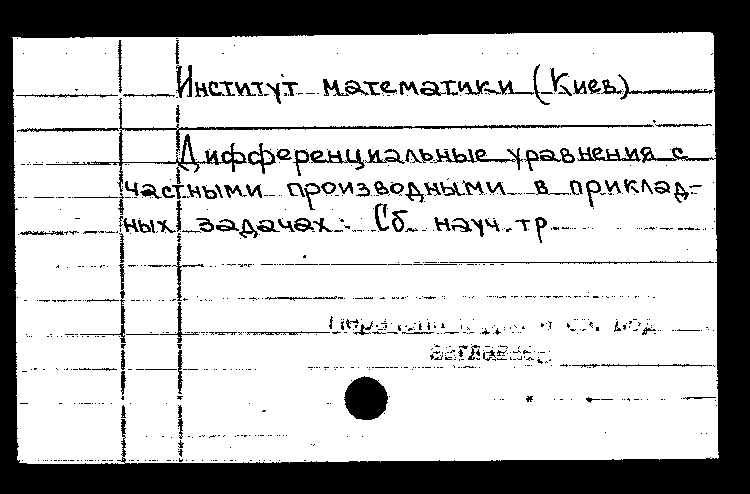 Институт математики (Киев)
Дифференциальные уравнения с
частными производными в приклад-
ных задачах: Сб. науч. тр.
см. под